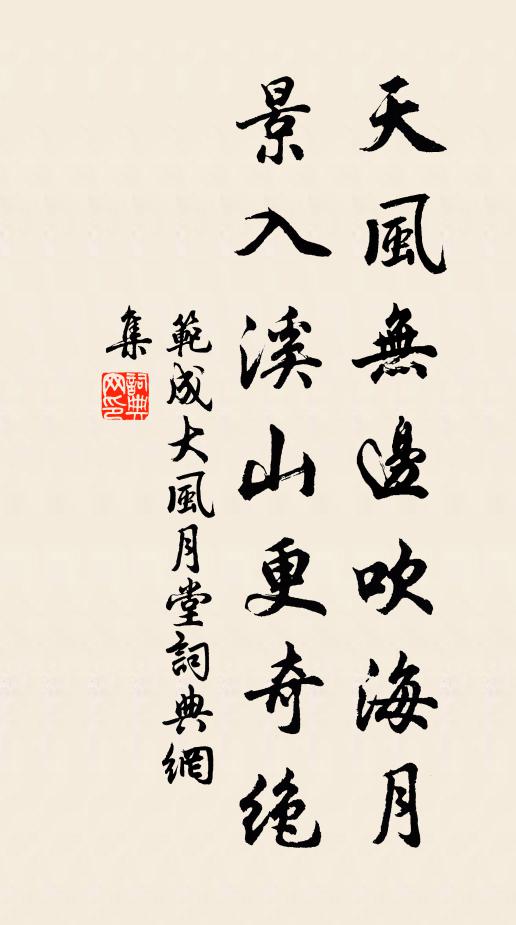 天風無邊吹海月
景入溪山更奇絕
範成大風月堂詞典網
集
詞典
网印